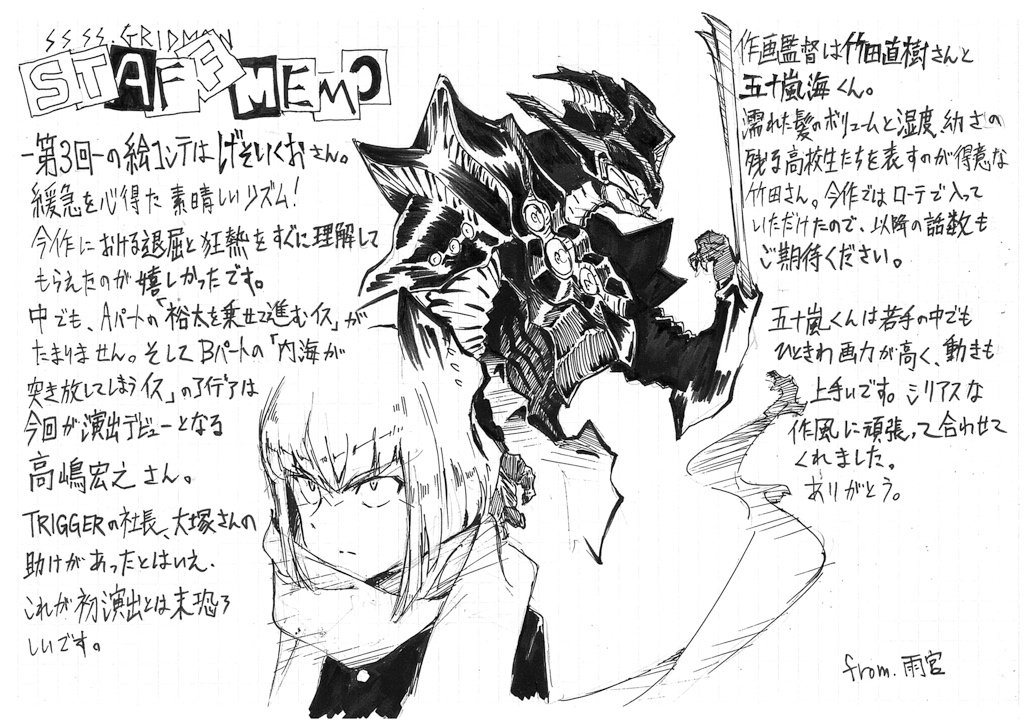 SSSS.GRIDMAN
STAFF MEMO
-第3回-の絵コンテはげそいくおさん。
緩急を心得た素晴しいリズム!
今作における退屈と狂熱をすぐに理解して
もらえたのが嬉しかったです。
中でも、Aパートの「裕太を乗せて進むイス」が
たまりません。そしてBパートの「内海が
突き放してしまうイス」のアイデアは
今回が演出デビューとなる
高嶋宏之さん。
TRIGGERの社長、大塚さんの
助けがあったとはいえ、
これが初演出とは末恐ろ
しいです。
作画監督は竹田直樹さんと
五十嵐海くん。
濡れた髪のボリュームと湿度、幼さの
残る高校生たちを表すのが得意な
竹田さん。今作ではローテで入って
いただけたので、以降の話数も
ご期待ください。
五十嵐くんは若手の中でも
ひときわ画力が高く、動きも
上手いです。シリアスな
作風に頑張って合わせて
くれました。
ありがとう。
from.雨宮